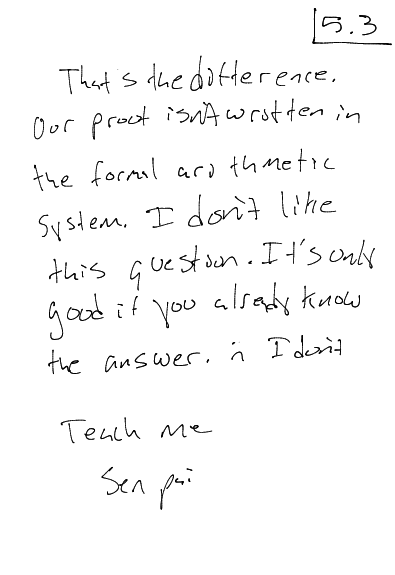 5.3
That's the difference.
Our proof isn't written in
the formal arithmetic
system. I don't like
this question. It's only
good if you already know
the answer. n I don't
Teach me
Senpai